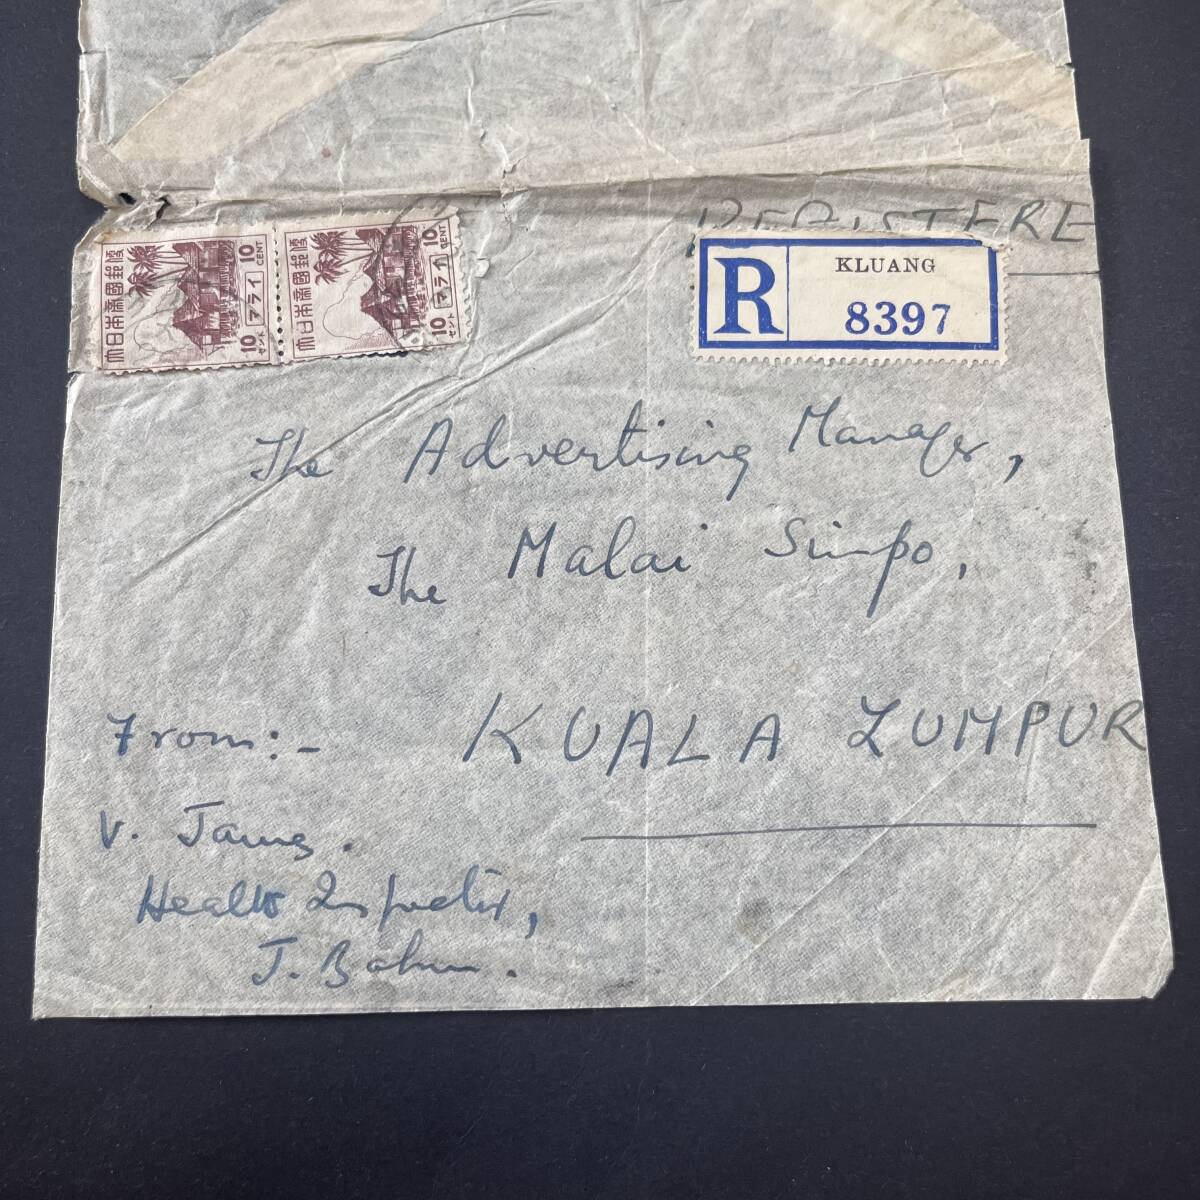 REGISTERE
大日本帝國郵便
10
CENT
マライ
10
セント
大日本帝國郵便
10
CENT
マライ
10
セント
R
KLUANG
8397
The Advertising Manager,
The Malai Sinpo,
KUALA LUMPUR
From:-
V. James.
Health Inspector,
J. Bahru.